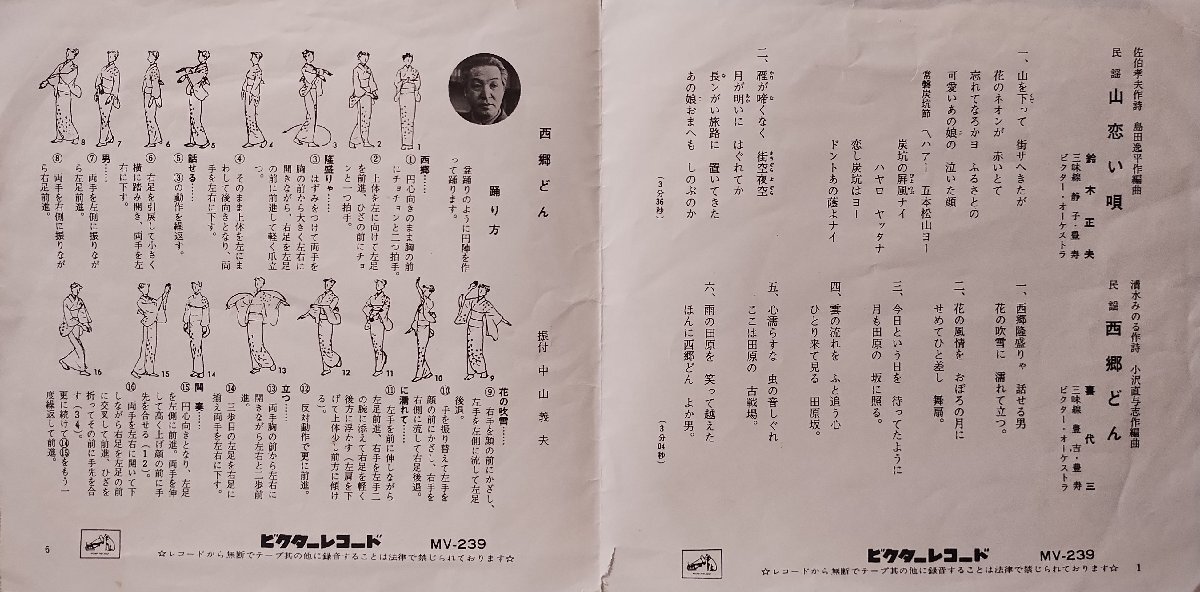 佐伯孝夫作詩 島田逸平作編曲
民謡 山恋い唄
鈴木正夫
三味線 静子・豊寿
ビクター・オーケストラ
一、山を下って 街サへきたが
花のネオンが 赤いとて
忘れてなろかヨ ふるさとの
可愛いあの娘の 泣いた顔
常磐炭坑節 〽ハァー 五本松山ヨー
炭坑の屏風ナイ
ハヤロ ヤッタナ
恋し炭坑はヨー
ドントあの蔭よナイ
二、狸が啼くなく 街空夜空
月が明いに はぐれてか
長ンがい旅路に 置いてきた
あの娘おまへも しのぶのか
(3分36秒)
清水みのる作詩 小沢直与志作編曲
民謡 西郷どん
喜代三
三味線 豊吉・豊寿
ビクター・オーケストラ
一、西郷隆盛りゃ 話せる男
花の吹雪に 濡れて立つ。
二、花の風情を おぼろの月に
せめてひと差し 舞扇。
三、今日という日を 待ってたように
月も田原の 坂に照る。
四、雲の流れを ふと追う心
ひとり来て見る 田原坂。
五、心濡らすな 虫の音しぐれ
ここは田原の 古戦場。
六、雨の田原を 笑って越えた
ほんに西郷どん よか男。
(3分04秒)
ビクターレコード MV-239
☆レコードから無断でテープ其の他に録音することは法律で禁じられております☆
1
西郷どん
踊り方
振付 中山義夫
盆踊りのように円陣を作
って踊ります。
西郷……
① 円心向きのまま胸の前
にチョチョンと二つ拍手。
② 上体を左に向けて左足
を前進、ひざの前にチョ
ンと一つ拍手。
隆盛りゃ……
③ はずみをつけて両手を
胸の前から大きく左右に
開きながら、右足を左足
の前に前進して軽く爪立
つ。
④ そのまま上体を左にま
わして後向きとなり、両
手を左右に下す。
話せる……
⑤ ③の動作を繰返す。
⑥ 左足を引戻して小さく
横に踏み開き、両手を左
右に下す。
男……
⑦ 両手を左側に振りなが
ら左足前進。
⑧ 両手を右側に振りなが
ら右足前進。
1
2
3
4
5
6
7
8
花の吹雪……
⑨ 右手を顔の前にかざし、
左手を左側に流して左足
後退。
⑩ 手を振り替えて左手を
顔の前にかざし、右手を
右側に流して右足後退。
に濡れて……
⑪ 左手を前に伸しながら
左足前進、右手を左手二
の腕に添えて右足を軽く
後方に浮かす(左肩を下
げて上体少し前方に傾け
る)。
⑫ 反対動作で更に前進。
立つ……
⑬ 両手胸の前から左右に
開きながら左右と二歩前
進。
⑭ 三歩目の左足を右足に
揃え両手を左右に下す。
間奏……
⑮ 円心向きとなり、左足
を左側に前進。両手を伸
して高く上げ顔の前に手
先を合せる(12)。
⑯ 両手を左右に開いて下
しながら右足を左足の前
に交叉して前進、ひざを
折ってその前に手先を合
す(34)。
更に続けて⑭⑮をもう一
度繰返して前進。
9
10
11
12
13
14
15
16
ビクターレコード MV-239
☆レコードから無断でテープ其の他に録音することは法律で禁じられております☆
6